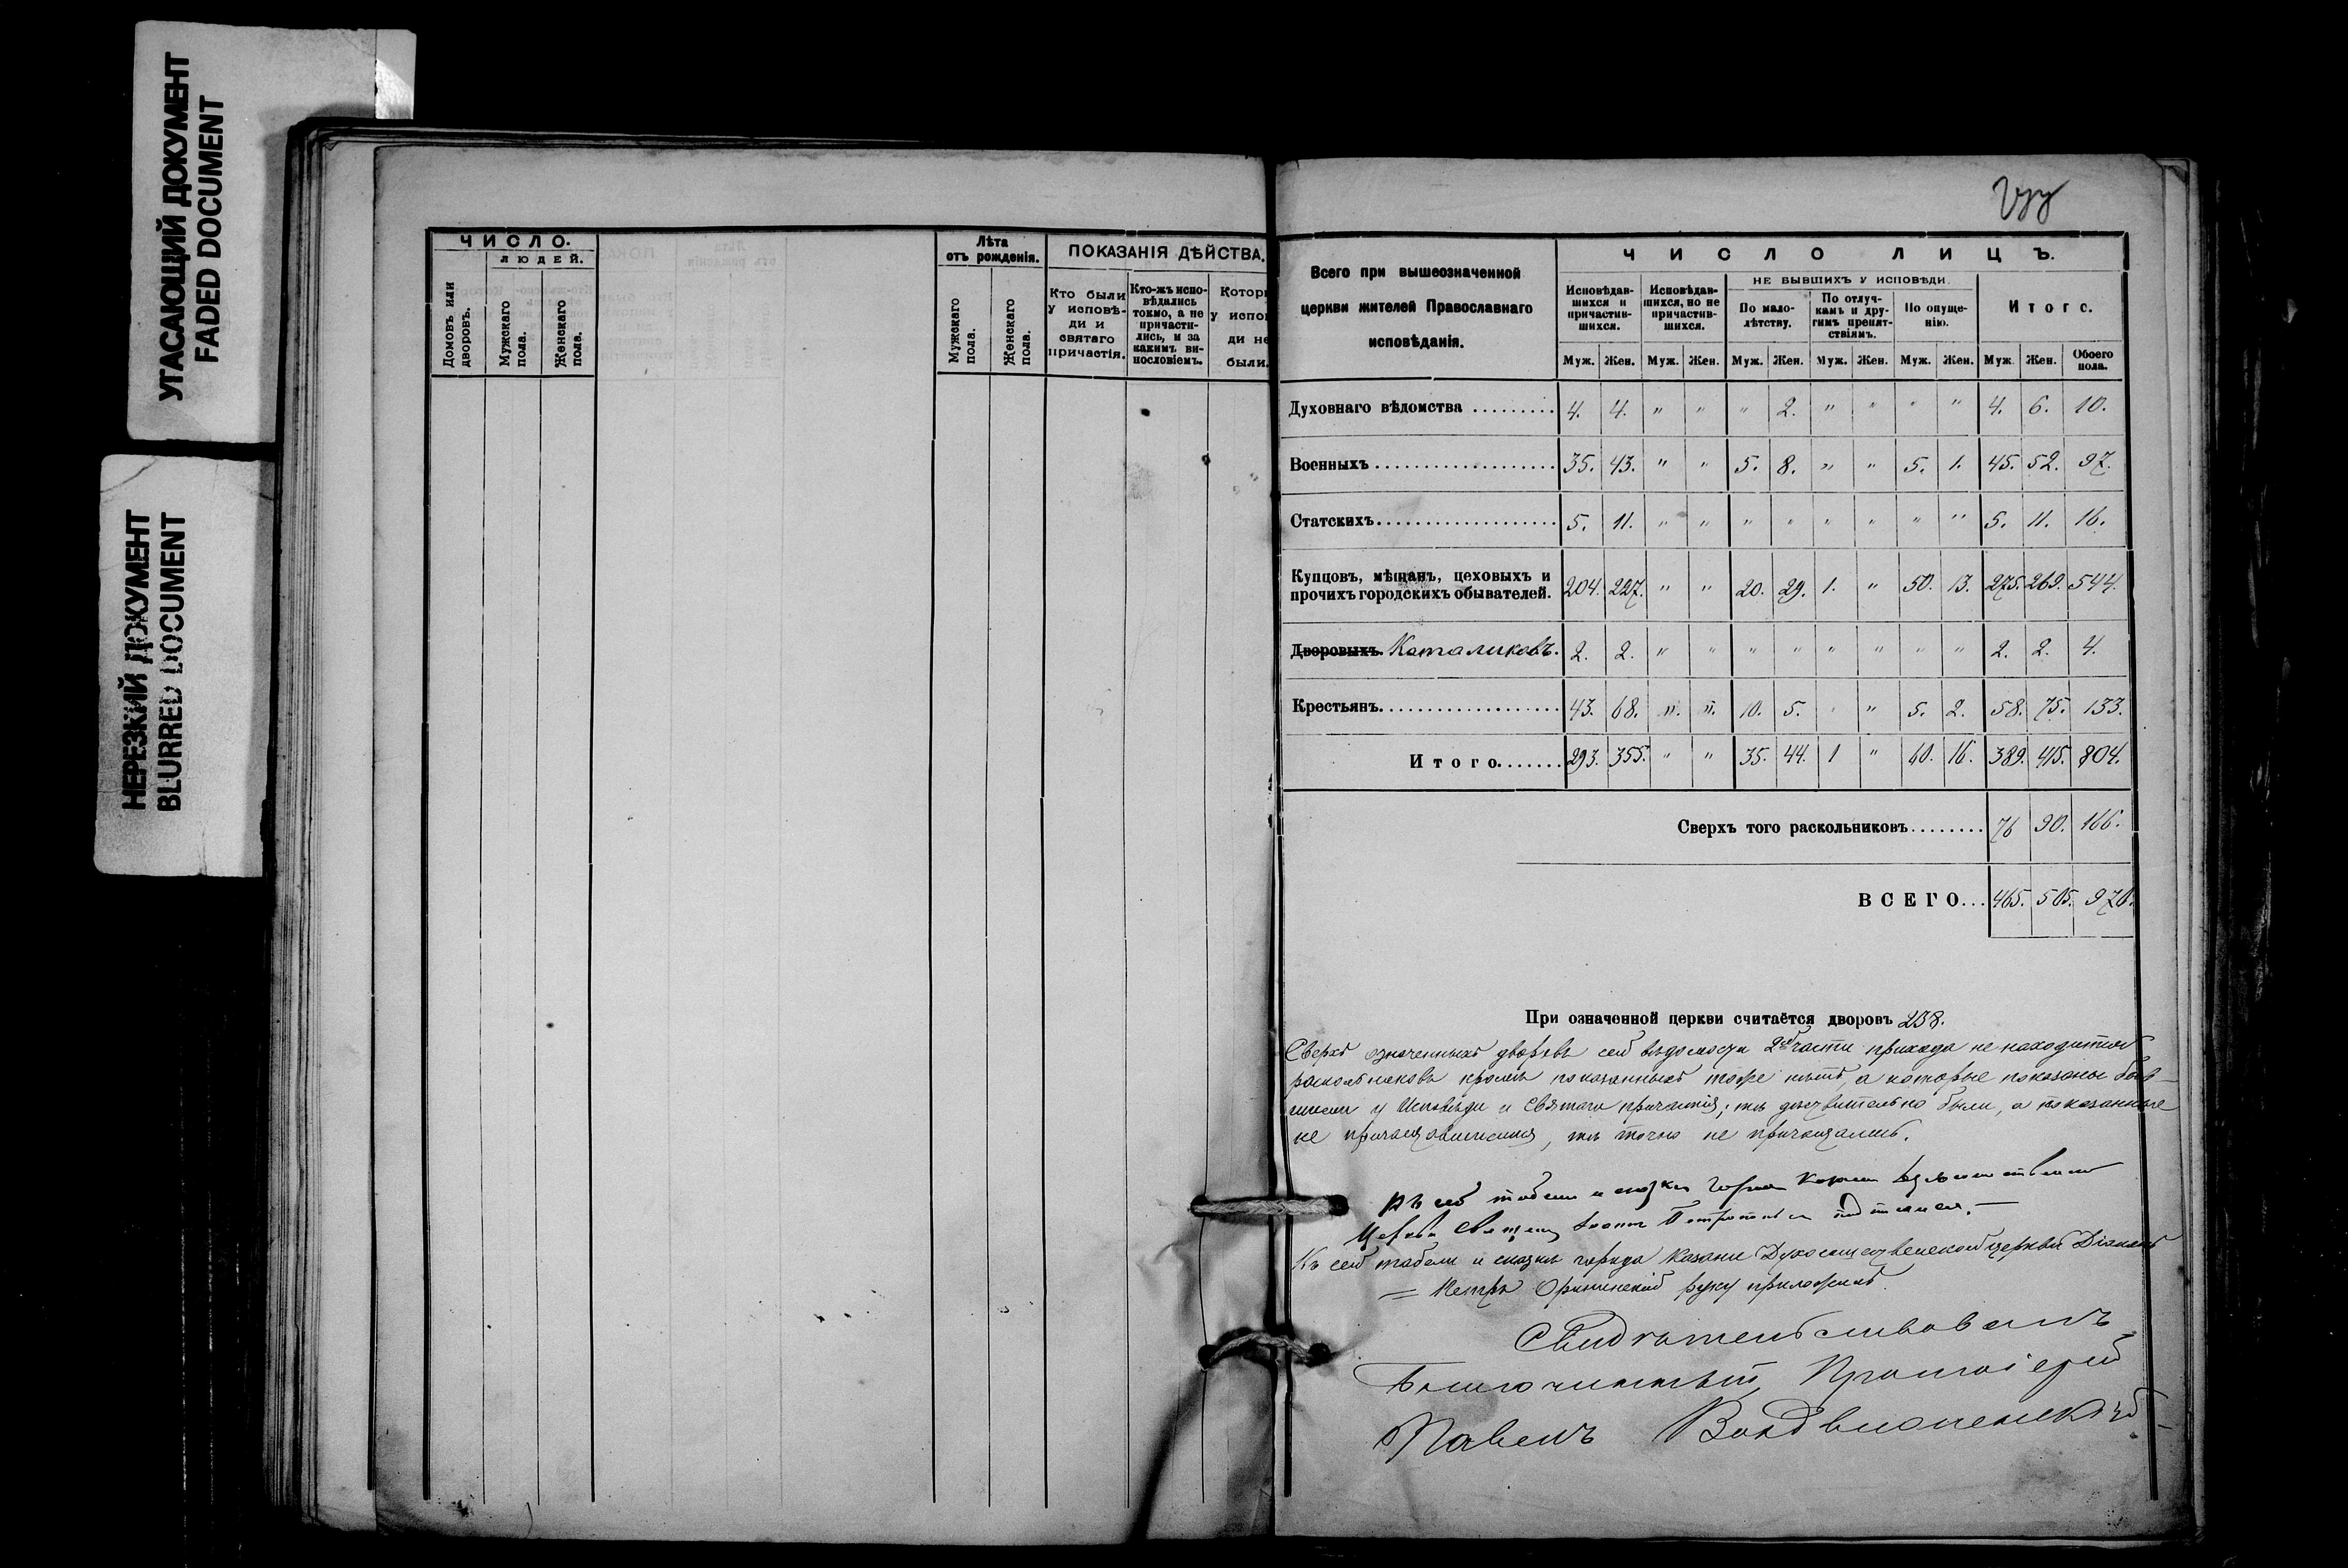 УГАСАЮЩИЙ ДОКУМЕНТ
FADED DOCUMENT
НЕРЕЗКИЙ ДОКУМЕНТ
BLURRED DOCUMENT
ЧИСЛО.
ЛЮДЕЙ.
Домовъ или дворовъ.
Мужскаго пола.
Женскаго пола.
Лѣта отъ рожденія.
Мужскаго пола.
Женскаго пола.
ПОКАЗАНІЯ ДѢЙСТВА.
Кто были у исповѣди и святаго причастія.
Кто-жъ исповѣдались токмо, а не причастились, и за какимъ винословіемъ.
Котор
у испо
ди не
были.
Всего при вышеозначенной
церкви жителей Православнаго
исповѣданія.
ЧИСЛО ЛИЦЪ.
Исповѣдавшихся и причастившихся.
Исповѣдавшихся, но не причастившихся.
НЕ БЫВШИХЪ У ИСПОВѢДИ.
По малолѣтству.
По отлучкамъ и другимъ препятствіямъ.
По опущенію.
Итого.
Муж. Жен. Муж. Жен. Муж. Жен. Муж. Жен. Муж. Жен. Муж. Жен. Обоего пола.
Духовнаго вѣдомства ......... 4. 4. " " " 2. " " " " 4. 6. 10.
Военныхъ ................... 35. 43. " " 5. 8. " " 5. 1. 45. 52. 97.
Статскихъ................... 5. 11. " " " " " " " " 5. 11. 16.
Купцовъ, мѣщанъ, цеховыхъ и
прочихъ городскихъ обывателей. 204. 227. " " 20. 29. 1. " 50. 13. 275. 269. 544.
Дворовыхъ. Католиковъ. 2. 2. " " " " " " " " 2. 2. 4.
Крестьянъ................... 43. 68. ". ". 10. 5. " " 5. 2. 58. 75. 133.
Итого....... 293. 355. " " 35. 44. 1 " 60. 16. 389. 415. 804.
Сверхъ того раскольниковъ........ 76 90. 166.
ВСЕГО... 465. 505. 970.
При означенной церкви считаётся дворовъ 238.
Сверхъ означенныхъ дворовъ сей вѣдомости 2ой части прихода не находится
раскольниковъ кромѣ показанныхъ тоже нѣтъ, а которые показаны быв-
шими у Исповѣди и Святаго причастія; тѣ дѣйствительно были, а показанные
не причащавшимися, тѣ точно не причащались.
Къ сей табели и сказкѣ города Казани
Церкви Священ Іоаннъ подписался.
Къ сей табели и сказкѣ города Казани Духосошественской церкви Діаконъ
= Петръ руку приложилъ.
Свидѣтельствовалъ
Благочинный Протоіерей
Павелъ